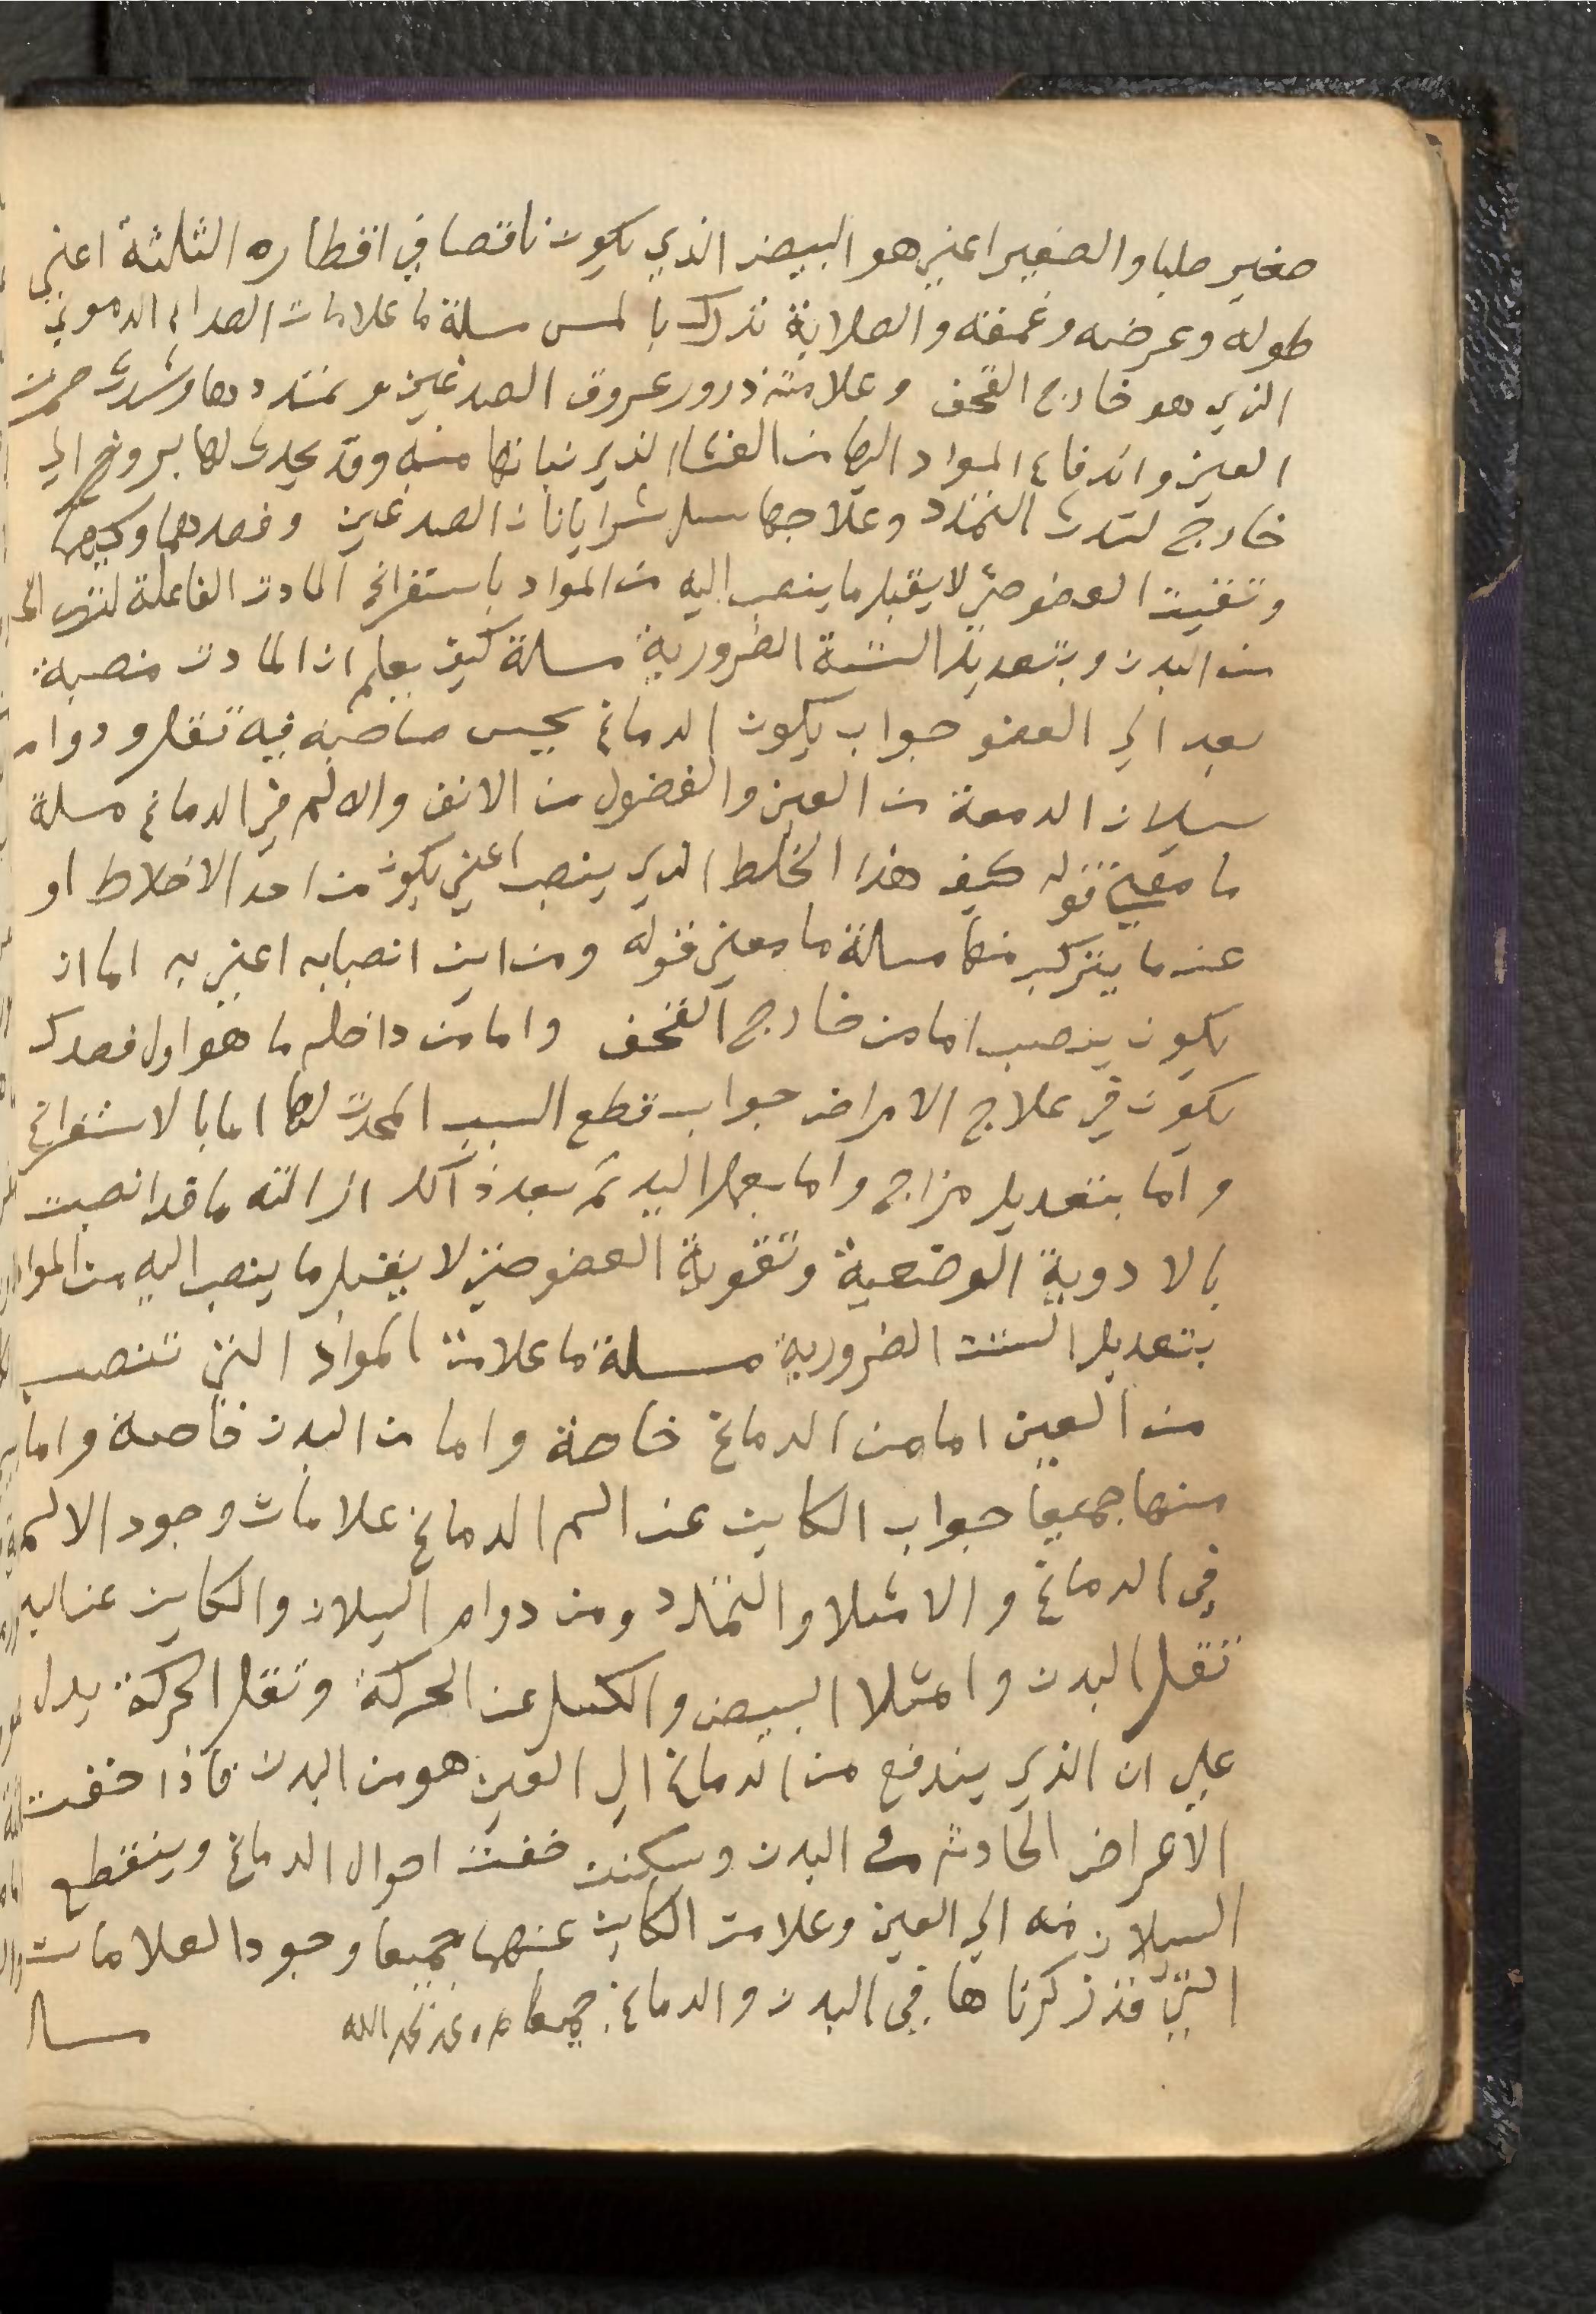 صغير صلبا والصغير اعني هو البيض الذي يكون ناقصا في اقطاره الثلثة اعني
طوله وعرضه وعمقه والصلابة تدرك بالمس مسلة ما علامات الصداع الدموي
الذي هو خارج القحف وعلامته درور عروق الصدغين وتمتددها وشدت حمرت
العين واندفاع المواد اليها من الغشا الذي نباتها منه وقد يحدث لها بروز الي
خارج لشدت التمدد وعلاجها سل شرايانات الصدغين وفصدهما وكيهما
وتقيت العضو حتي لا يقبل ما ينصب اليه من المواد باستفراغ المادت الفاعلة
من البدن وبتعديل الستة الضرورية مسلة كيف يعلم ان المادت منصبة
بعد الي العضو جواب يكون الدماغ يحس صاحبه فيه تقل ودوام
سيلان الدمعة من العين والفضول من الانف والالم في الدماغ مسلة
ما معني قوله كيف هذا الخلط الذي ينصب اعني يكون من احد الاخلاط او
عند ما يتركب منها مسالة ما معني قوله ومن اين انصبابه اعني به اما ان
يكون ينصب اما من خارج القحف واما من داخله ما هو اول قصدك
يكون في علاج الامراض جواب قطع السبب المحدث لها اما بالاستفراغ
واما بتعديل مزاج واما بعمل اليد ثم بعد ذالك ازالته ما قد انصبت
بالادوية الوضعية وتقوية العضو حتي لا يقبل ما ينصب اليه من المواد
بتعديل الستت الضرورية مسلة ما علامت المواد التي تنصب
من العين اما من الدماغ خاصة واما من البدن خاصة واما
منهما جميعا جواب الكاين عن الم الدماغ علامات وجود الالم
في الدماغ والامتلا والتمدد ومن دوام السيلان والكاين عن اليد
تقل البدن وامتلا البيض والكسل عن الحركة وتقل الحركة يدل
علي ان الذي يندفع من الدماغ الي العين هو من البدن فاذا خفت
الاعراض الحادثه في البدن وسكنت خفت احوال الدماغ وينقطع
السيلان منه الي العين وعلامت الكاين عنهما جميعا وجود العلامات
التي قد ذكرناها في البدن والدماغ جميعا
مسا